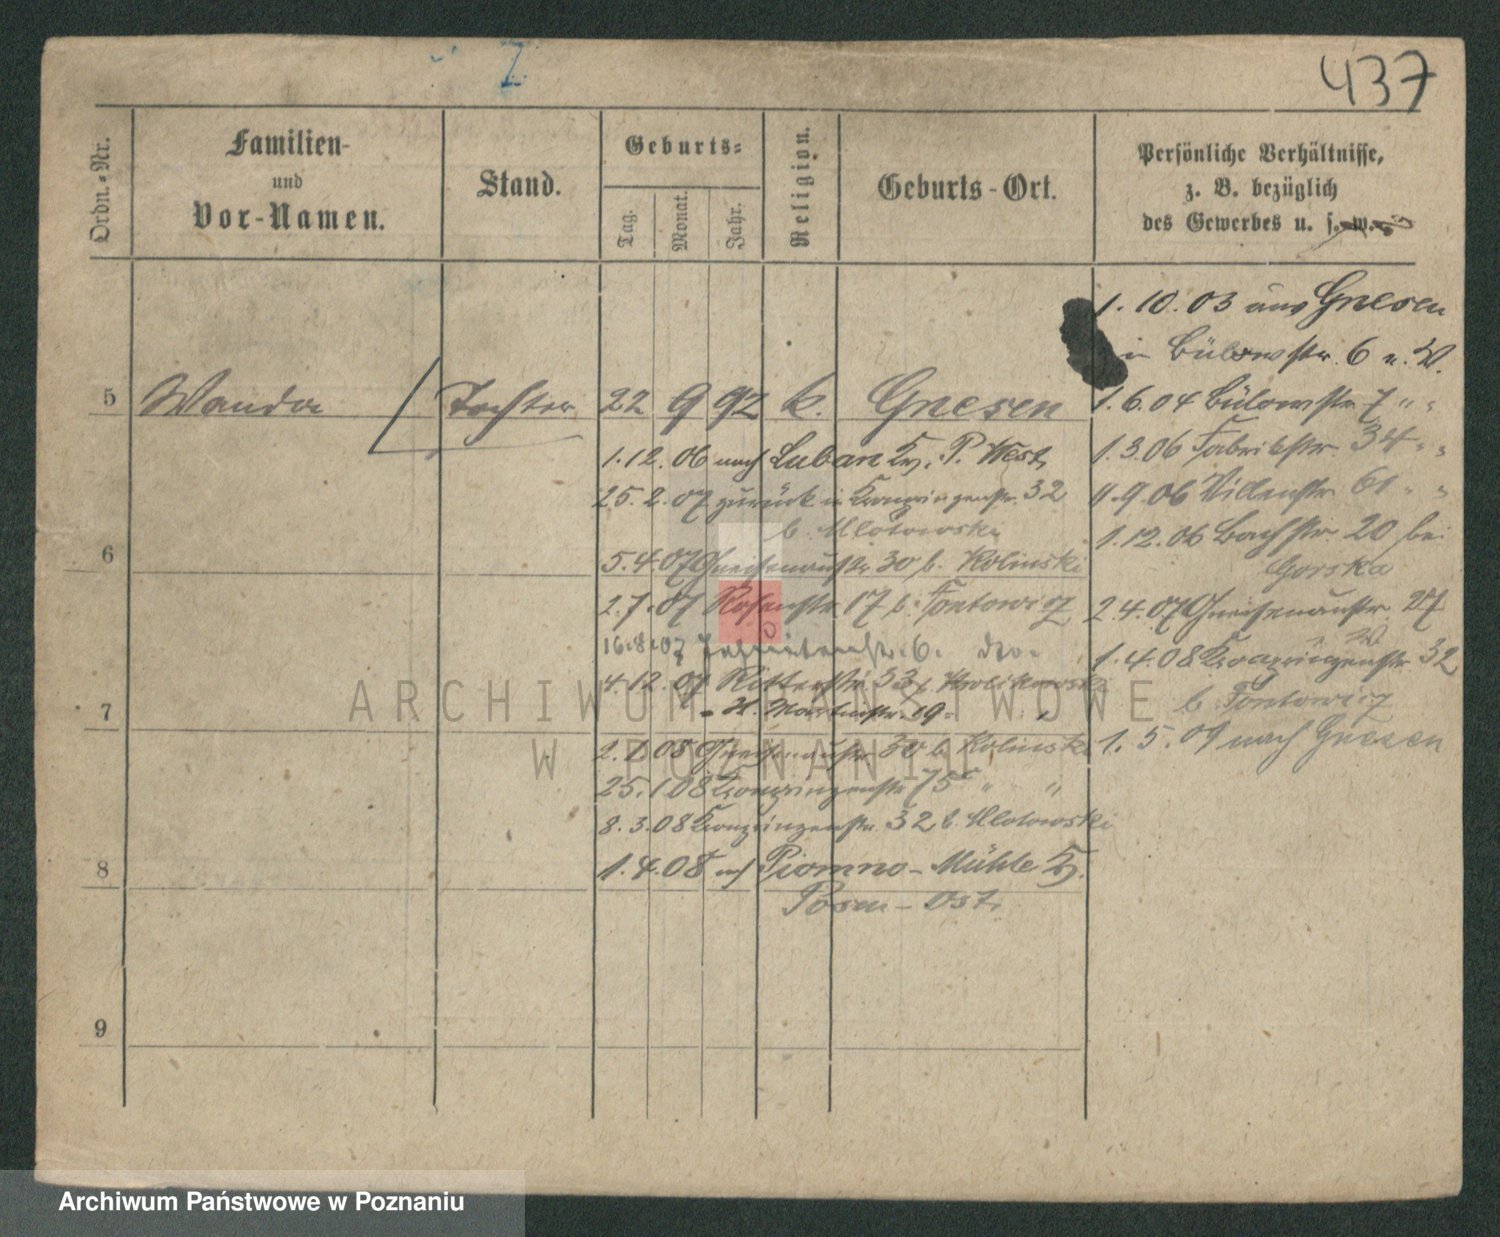 437
Ordn.-Nr.
Familien-
und
Vor-Namen.
Stand.
Geburts-
Tag.
Monat.
Jahr.
Religion.
Geburts-Ort.
Persönliche Verhältnisse,
z. B. bezüglich
des Gewerbes u. s. w.
1. 10. 03 aus Gnesen
in Bülowstr. 6 n. W.
5 Wanda Tochter 22 9 92 k. Gnesen
1.6.04 Bülowstr 7 " "
1.12.06 nach Luban Kr. P. West
1.3.06 Fabrikstr. 34 " "
25.2.07 zurück in Kronprinzenstr. 32
b. Mlotowski
9.06 Villenstr 61 " "
1.12.06 Bachstr 20 bei
Gorska
6
5.4.07 Gneisenaustr 30 b. Kolinski
2.7.07 Rosenstr 17 b. Tontowicz
2.4.07 Gneisenaustr. 27
16.8.07 Jesuitenstr. 6. do.
1.4.08 Kronprinzenstr 32
b. Tontowicz
4.12.07 Ritterstr 33 b. Krolikowski
7
St. Martinstr. 19
1. 5. 09 nach Gnesen
08 Gneisenaustr 30 b. Kolinski
25.1.08 Kronprinzenstr 75 " "
8.3.08 Kronprinzenstr. 32 b. Mlotowski
8
1.4.08 Piomno-Mühle Kr.
Posen-Ost.
9
ARCHIWUM PAŃSTWOWE
W POZNANIU
Archiwum Państwowe w Poznaniu